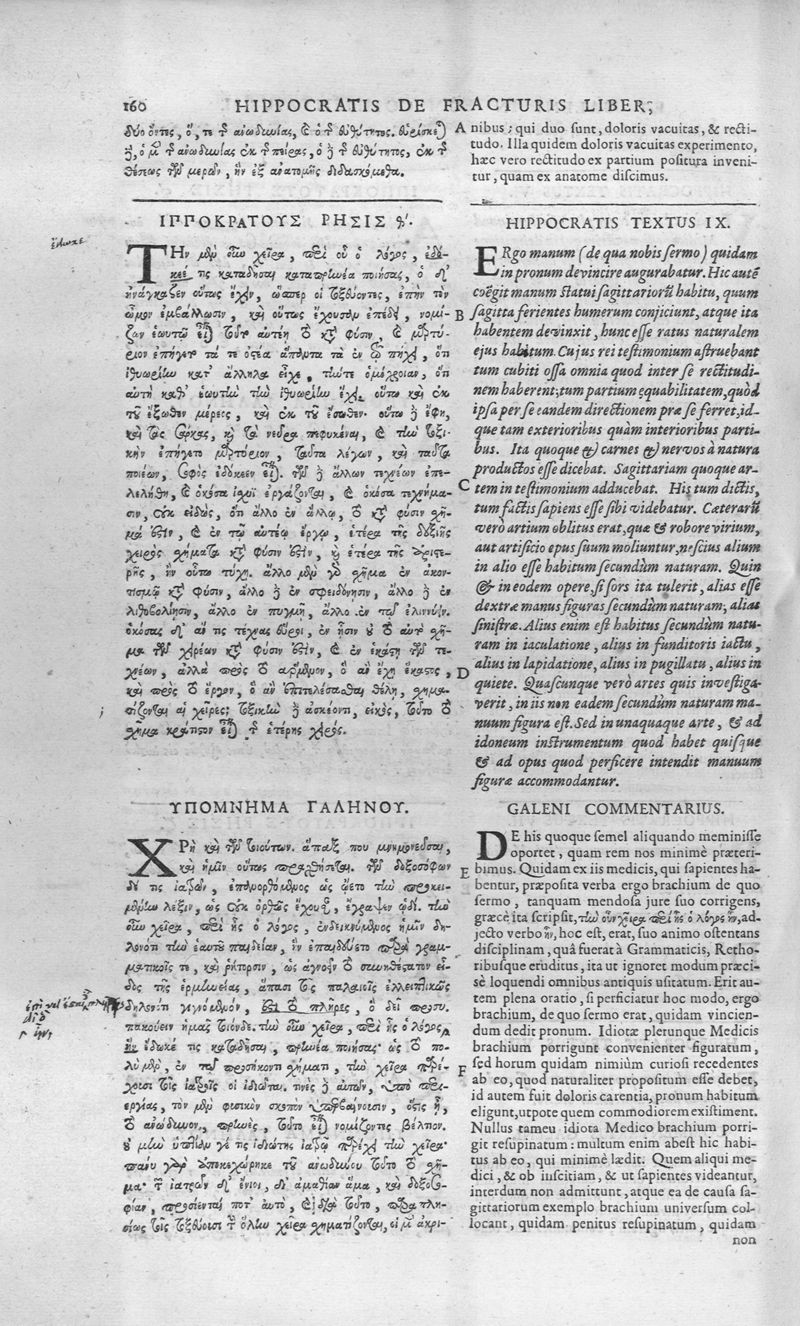 160 HIPPOCRATIS DE FRACTURIS LIBER,
δύο ὄντες, ὅ, τε τῆς ἀνωδυνίας, καὶ ὁ τῆς εὐθύτητος. εὑρίσκεται
δὲ, ὁ μὲν τῆς ἀνωδυνίας ἐκ τῆς πείρας, ὁ δὲ τῆς εὐθύτητος, ἐκ τῆς
θέσεως τῶν μερῶν, ἣν ἐξ ἀνατομῆς διδασκόμεθα.
ΙΠΠΟΚΡΑΤΟΥΣ ΡΗΣΙΣ θ'.
ΤΗν μὲν οὖν χεῖρα, περὶ οὗ ὁ λόγος, ἐδό-
κεέ τις καταδῆσαι καταπρηνέα ποιήσας, ὁ δ'
ἠνάγκαζεν οὕτως ἔχειν, ὥσπερ οἱ τοξεύοντες, ἐπὴν τὸν
ὦμον ἐμβάλλωσιν, καὶ οὕτως ἔχουσαν ἐπέδει, νομί-
ζων ἑωυτῷ εἶναι τοῦτο αὐτέη τὸ κατὰ φύσιν, καὶ μαρτύ-
ριον ἐπήγετο τά τε ὀστέα ἅπαντα τὰ ἐν τῷ πήχει, ὅτι
ἰθυωρίην κατ' ἄλληλα εἶχε, τήν τε ὁμόχροιαν, ὅτι
αὐτὴ καθ' ἑωυτὴν τὴν ἰθυωρίην ἔχει, οὕτω καὶ ἐκ
τοῦ ἔξωθεν μέρεος, καὶ ἐκ τοῦ ἔσωθεν· οὕτω δὲ ἔφη,
καὶ τὰς σάρκας, καὶ τὰ νεῦρα πεφυκέναι, καὶ τὴν τοξι-
κὴν ἐπήγετο μαρτύριον, ταῦτα λέγων, καὶ ταῦτα
ποιέων, σοφὸς ἐδόκεεν εἶναι. τῶν δὲ ἄλλων τεχνέων ἐπε-
λελήθη, καὶ ὁκόσα ἰσχύϊ ἐργάζονται, καὶ ὁκόσα τεχνήμα-
σιν, οὐκ εἰδὼς, ὅτι ἄλλο ἐν ἄλλῳ, τὸ κατὰ φύσιν σχῆ-
μά ἐστιν, καὶ ἐν τῷ αὐτέῳ ἔργῳ, ἕτερα τῆς δεξιῆς
χειρὸς σχήματα κατὰ φύσιν ἐστὶν, καὶ ἕτερα τῆς ἀριστε-
ρῆς, ἢν οὕτω τύχῃ. ἄλλο μὲν γὰρ σχῆμα ἐν ἀκον-
τισμῷ κατὰ φύσιν, ἄλλο δὲ ἐν σφενδόνησιν, ἄλλο δὲ ἐν
λιθοβολίησιν, ἄλλο ἐν πυγμῇ, ἄλλο ἐν τῷ ἐλιννύειν.
ὁκόσας δ' ἄν τις τέχνας εὕροι, ἐν ᾗσιν οὐ τὸ αὐτὸ σχῆ-
μα τῶν χειρέων κατὰ φύσιν ἐστὶν, καὶ ἐν ἑκάστῃ τῶν τε-
χνέων, ἀλλὰ πρὸς τὸ ἄρμενον, ὃ ἂν ἔχῃ ἕκαστος,
καὶ πρὸς τὸ ἔργον, ὃ ἂν ἐπιτελέσασθαι θέλῃ, σχημα-
τίζονται αἱ χεῖρες; τοξικὴν δὲ ἀσκέοντι, εἰκὸς, τοῦτο τὸ
σχῆμα κράτιστον εἶναι τῆς ἑτέρης χειρός.
ΥΠΟΜΝΗΜΑ ΓΑΛΗΝΟΥ.
ΧΡὴ καὶ τῶν τοιούτων. ἅπαξ που μνημονεῦσαι,
καὶ ἡμῖν οὕτως παραθήσεται. τῶν δοξοσόφων
δέ τις ἰατρῶν, ἐπανορθούμενος ὡς ᾤετο τὴν προκει-
μένην λέξιν, ὡς οὐκ ὀρθῶς ἔχουσαν, ἔγραψεν ὧδε. τὴν
οὖν χεῖρα, περὶ ἧς ὁ λόγος, ἐνδεικνύμενος ἡμῖν δη-
λονότι τὴν ἑαυτοῦ παιδείαν, ἣν ἐπαιδεύετο παρὰ γραμ-
ματικοῖς τε, καὶ ῥήτορσιν, ὡς ἀγνοεῖν τὸ συνηθέστατον εἶ-
δος τῆς ἑρμηνείας, ἅπασι τοῖς παλαιοῖς ἐλλειπτικῶς
δηλονότι γιγνόμενον, ἔστι τὸ πλῆρες, ὃ δεῖ προσυ-
πακούειν ἡμᾶς τοιόνδε. τὴν οὖν χεῖρα, περὶ ἧς ὁ λόγος
ἦν ἔδωκέ τις καταδῆσαι, πρηνέα ποιήσας· ὡς τὸ πο-
λὺ μὲν, ἐν τῷ προσήκοντι σχήματι, τὴν χεῖρα παρέ-
χουσι τοῖς ἰατροῖς οἱ ἰδιῶται. τινὲς δὲ αὐτῶν, ὑπὸ περι-
εργίας, τὸν μὲν φυσικὸν σκοπὸν ὑπερβαίνουσιν, ὅστις ἦν,
τὸ ἀνώδυνον, πρηνὲς, τοῦτο εἶναι νομίζοντες βέλτιον.
οὐ μὴν ὑπτίαν γέ τις ἰδιώτης ἰατρῷ παρέχει τὴν χεῖρα·
πάνυ γὰρ ἀποκεχώρηκε τοῦ ἀνωδύνου τοῦτο τὸ σχῆ-
μα· τῶν ἰατρῶν δ' ἔνιοι, δι' ἀμαθίαν ἅμα, καὶ δοξοσο-
φίαν, προσίενταί ποτ' αὐτὸ, καὶ διὰ τοῦτο, παραπλη-
σίως τοῖς τοξεύουσι τὴν ὅλην χεῖρα σχηματίζονται, οἱ μὲν ἀκρι-
A nibus; qui duo ſunt, doloris vacuitas, & recti-
tudo. Illa quidem doloris vacuitas experimento,
hæc vero rectitudo ex partium poſitura inveni-
tur, quam ex anatome diſcimus.
HIPPOCRATIS TEXTUS IX.
ERgo manum (de qua nobis ſermo) quidam
in pronum devincire augurabatur. Hic autē
coëgit manum ſtatui ſagittariorū habitu, quum
B ſagittaferientes humerum conjiciunt, atque ita
habentem devinxit, hunc eſſe ratus naturalem
ejus habitum. Cujus rei teſtimonium aſtruebant
tum cubiti oſſa omnia quod inter ſe rectitudi-
nem haberent; tum partium ęquabilitatem, quòd
ipſa per ſe eandem directionem præ ſe ferret, id-
que tam exterioribus quàm interioribus parti-
bus. Ita quoque & carnes & nervos à natura
productos eſſe dicebat. Sagittariam quoque ar-
C tem in teſtimonium adducebat. His tum dictis,
tum factis ſapiens eſſe ſibi videbatur. Cæterarū
verò artium oblitus erat, quæ & robore virium,
aut artificio opus ſuum moliuntur, neſcius alium
in alio eſſe habitum ſecundùm naturam. Quin
& in eodem opere, ſi fors ita tulerit, alias eſſe
dextræ manus figuras ſecundùm naturam, alias
ſiniſtræ. Alius enim eſt habitus ſecundùm natu-
ram in iaculatione, alius in funditoris iactu,
alius in lapidatione, alius in pugillatu, alius in
D quiete. Quaſcunque verò artes quis inveſtiga-
verit, in iis non eadem ſecundùm naturam ma-
nuum figura eſt. Sed in unaquaque arte, & ad
idoneum inſtrumentum quod habet quiſque
& ad opus quod perficere intendit manuum
figuræ accommodantur.
GALENI COMMENTARIUS.
DE his quoque ſemel aliquando meminiſſe
oportet, quam rem nos minimè præteri-
E bimus. Quidam ex iis medicis, qui ſapientes ha-
bentur, præpoſita verba ergo brachium de quo
ſermo, tanquam mendoſa jure ſuo corrigens,
græcè ita ſcripſit, τὴν οὖν χεῖρα περὶ ἧς ὁ λόγος ἦν, ad-
jecto verbo ἦν, hoc eſt, erat, ſuo animo oſtentans
diſciplinam, quâ fuerat à Grammaticis, Retho-
ribuſque eruditus, ita ut ignoret modum præci-
sè loquendi omnibus antiquis uſitatum. Erit au-
tem plena oratio, ſi perficiatur hoc modo, ergo
brachium, de quo ſermo erat, quidam vincien-
dum dedit pronum. Idiotæ plerunque Medicis
brachium porrigunt convenienter figuratum,
F ſed horum quidam nimiùm curioſi recedentes
ab eo, quod naturaliter propoſitum eſſe debet,
id autem fuit doloris carentia, pronum habitum
eligunt, utpote quem commodiorem exiſtiment.
Nullus tameu idiota Medico brachium porri-
git reſupinatum: multum enim abeſt hic habi-
tus ab eo, qui minimè lædit. Quem aliqui me-
dici, & ob inſcitiam, & ut ſapientes videantur,
interdum non admittunt, atque ea de cauſa ſa-
gittariorum exemplo brachium univerſum col-
locant, quidam penitus reſupinatum, quidam
non
ἔδωκε